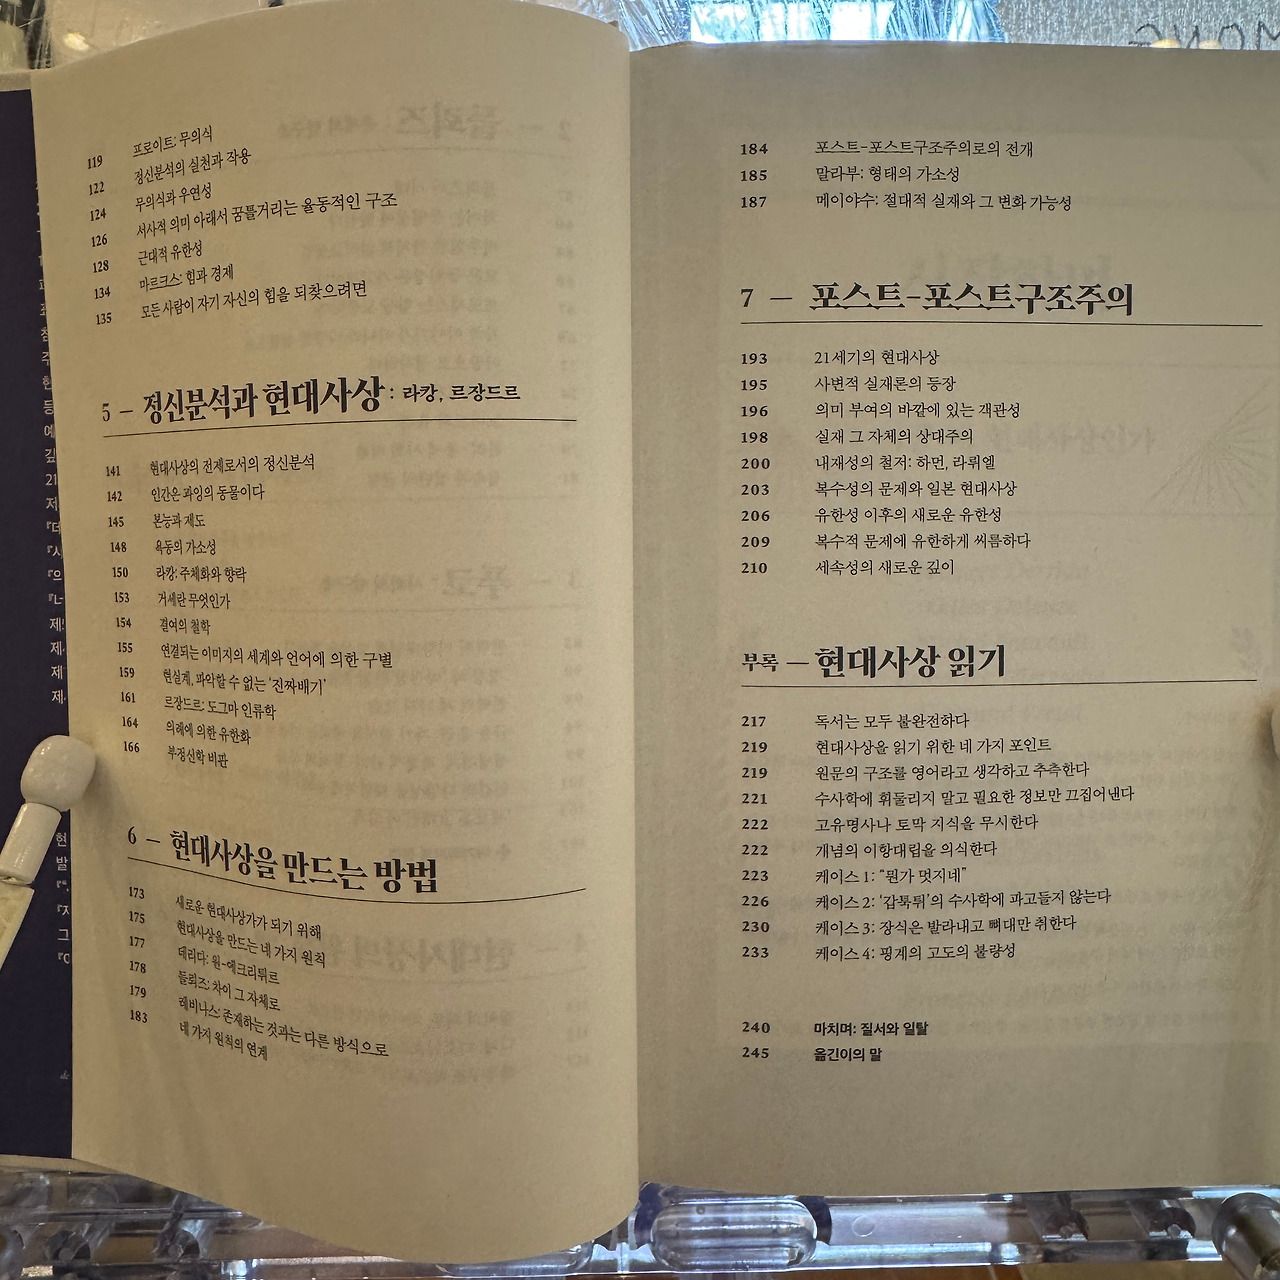 119 프로이트: 무의식
122 정신분석의 실천과 작용
124 무의식과 우연성
126 서사적 의미 아래서 꿈틀거리는 율동적인 구조
128 근대적 유한성
134 마르크스: 힘과 경제
135 모든 사람이 자기 자신의 힘을 되찾으려면
5 – 정신분석과 현대사상: 라캉, 르장드르
141 현대사상의 전제로서의 정신분석
142 인간은 과잉의 동물이다
145 본능과 제도
148 욕동의 가소성
150 라캉: 주체화와 향락
153 거세란 무엇인가
154 결여의 철학
155 연결되는 이미지의 세계와 언어에 의한 구별
159 현실계, 파악할 수 없는 ‘진짜배기’
161 르장드르: 도그마 인류학
164 의례에 의한 유한화
166 부정신학 비판
6 – 현대사상을 만드는 방법
173 새로운 현대사상가가 되기 위해
175 현대사상을 만드는 네 가지 원칙
177 데리다: 원-에크리튀르
178 들뢰즈: 차이 그 자체로
179 레비나스: 존재하는 것과는 다른 방식으로
183 네 가지 원칙의 연계
184 포스트-포스트구조주의로의 전개
185 말라부: 형태의 가소성
187 메이야수: 절대적 실재와 그 변화 가능성
7 – 포스트-포스트구조주의
193 21세기의 현대사상
195 사변적 실재론의 등장
196 의미 부여의 바깥에 있는 객관성
198 실재 그 자체의 상대주의
200 내재성의 철저: 하먼, 라뤼엘
203 복수성의 문제와 일본 현대사상
206 유한성 이후의 새로운 유한성
209 복수적 문제에 유한하게 씨름하다
210 세속성의 새로운 깊이
부록 – 현대사상 읽기
217 독서는 모두 불완전하다
219 현대사상을 읽기 위한 네 가지 포인트
219 원문의 구조를 영어라고 생각하고 추측한다
221 수사학에 휘둘리지 말고 필요한 정보만 끄집어낸다
222 고유명사나 토막 지식을 무시한다
222 개념의 이항대립을 의식한다
223 케이스 1: “뭔가 멋지네”
226 케이스 2: ‘갑툭튀’의 수사학에 파고들지 않는다
230 케이스 3: 장식은 발라내고 뼈대만 취한다
233 케이스 4: 핑계의 고도의 불량성
240 마치며: 질서와 일탈
245 옮긴이의 말